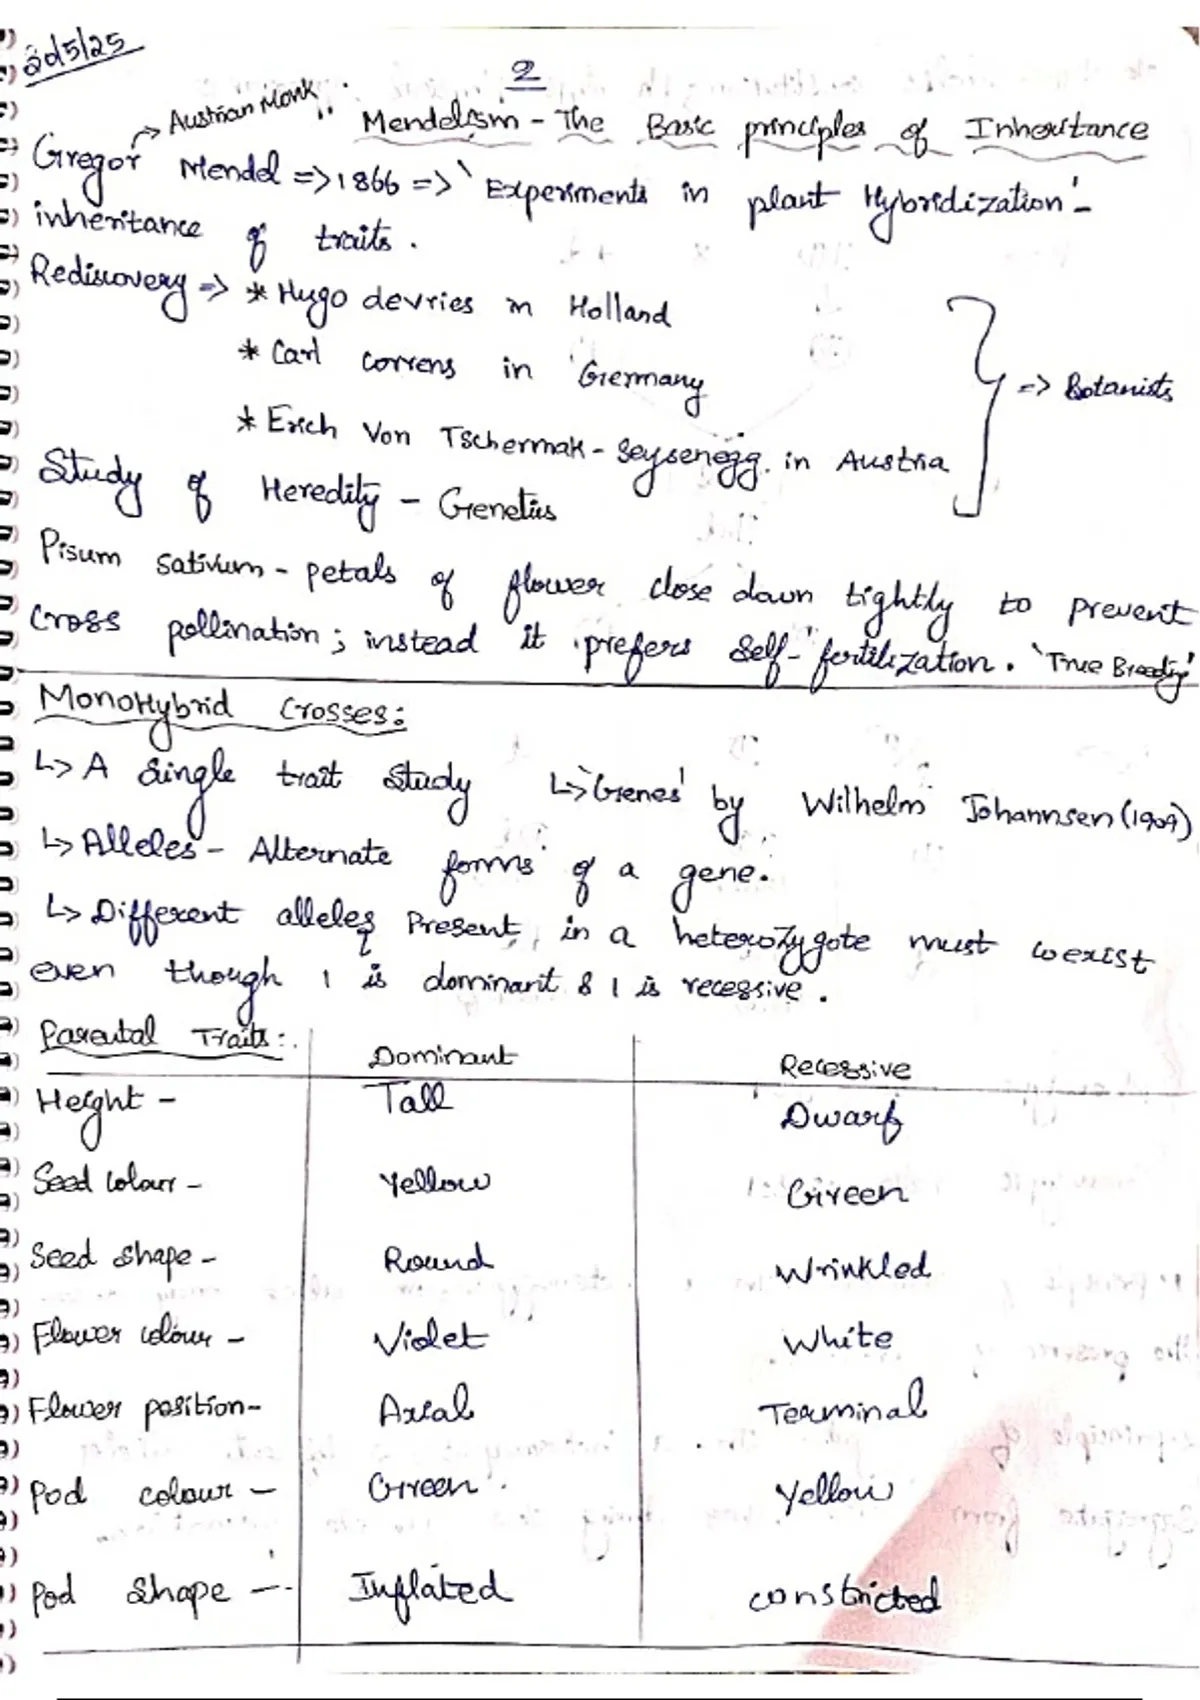 20/5/25
2
Mendelism - The Basic principles of Inheritance
-> Austrian Monk
Gregor Mendel => 1866 => 'Experiments in plant Hybridization' -
inheritance of traits.
Rediscovery => * Hugo devries in Holland
* Carl Correns in Germany
* Erich Von Tschermak - Seysenegg. in Austria
=> Botanists
Study of Heredity - Genetics
Pisum sativum - petals of flower close down tightly to prevent
cross pollination; instead it prefers self-fertilization. 'True Breeding'
MonoHybrid Crosses:
↳ A single trait study ↳ 'Genes' by Wilhelm Johannsen (1909)
↳ Alleles - Alternate forms of a gene.
↳ Different alleles present in a heterozygote must coexist
even though 1 is dominant & 1 is recessive.
Parental Traits: Dominant Recessive
Height - Tall Dwarf
Seed colour - Yellow Green
Seed shape - Round Wrinkled
Flower colour - Violet White
Flower position - Axial Terminal
Pod colour - Green Yellow
Pod shape - Inflated constricted